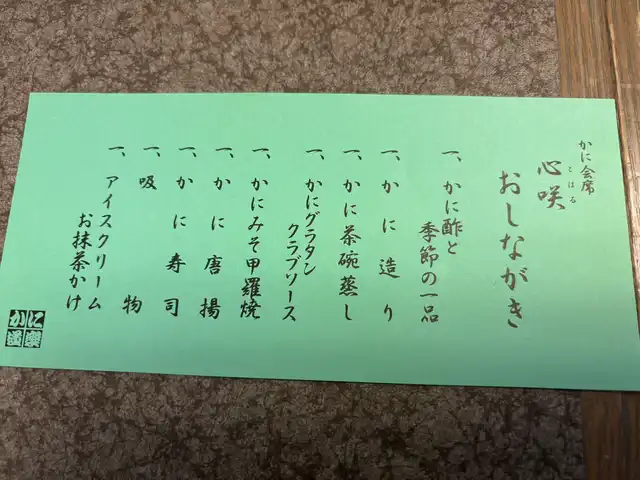 かに会席
心咲
こはる
おしながき
一、かに酢と
季節の一品
一、かに造り
一、かに茶碗蒸し
一、かにグラタン
クラブソース
一、かにみそ甲羅焼
一、かに唐揚
一、かに寿司
一、吸物
一、アイスクリーム
お抹茶かけ
かに道楽